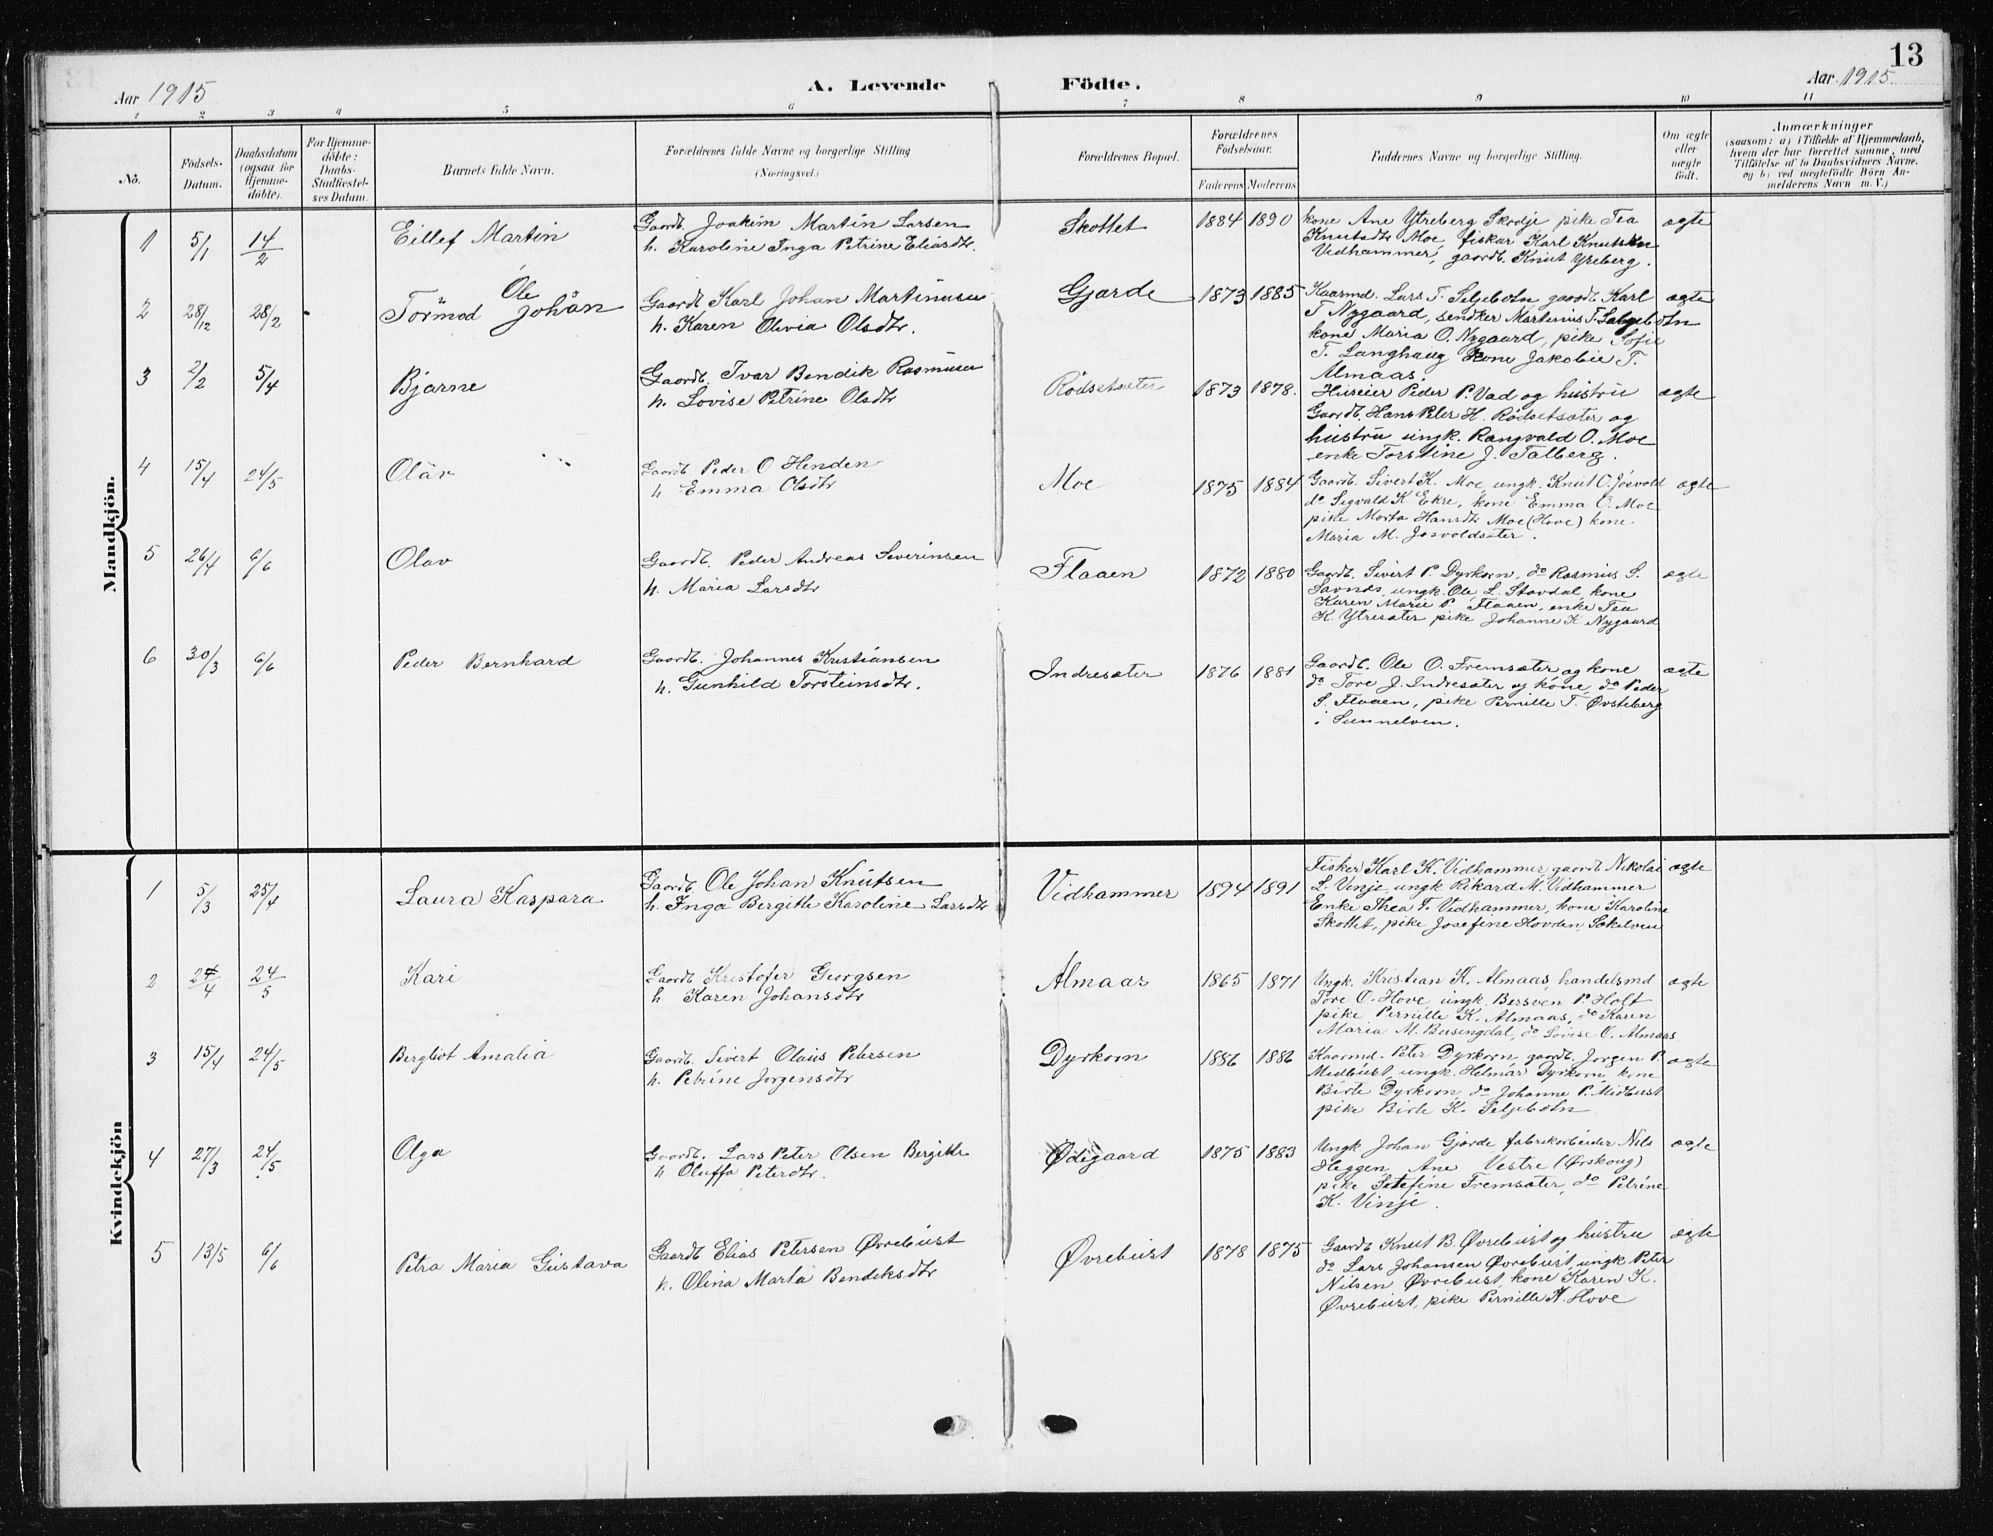 13
Aar 1915
A. Levende Födte.
Aar 1915
1 2 3 4 5 6 7 8 9 10 11
No.
Födsels-Datum.
Daabsdatum (ogsaa for Hjemme-döbte).
For Hjemme-döbte: Daabs-Stadfæstel-ses Datum.
Barnets fulde Navn.
Forældrenes fulde Navne og borgerlige Stilling
(Næringsvei.)
Forældrenes Bopæl.
Forældrenes Födselsaar.
Faderens Moderens
Faddernes Navne og borgerlige Stilling.
Om ægte eller uægte födt.
Anmærkninger
(saasom: a) i Tilfælde af Hjemmedaab,
hvem der har forrettet samme, med
Tilföielse af to Daabsvidners Navne.
og b) ved uægtefödte Börn An-
melderens Navn m. V.)
Mandkjön.
1 5/1 14/2 Eillef Martin
Gaardb. Joakim Martin Larsen
h. Karoline Inga Petrine Eliasdtr.
Skottet 1884 1890
kone Ane Ytreberg Skodje, pike Tea
Knutsdtr Moe, fisker Karl Knutsen
Vidhammer, gaardb. Knut Yreberg.
ægte
2 28/12 28/2 Tormod Ole Johan
Gaardb Karl Johan Martinusen
h. Karen Olivia Olsdtr.
Gjærde 1873 1885
Kaarmd. Lars T. Seljebotn gaardb. Karl
T Nygaard, sendker Martinus T. Seljebotn
kone Maria O. Nygaard, pike Sofie
T. Langhaug kone Jakobie T.
Almaas.
ægte
3 2/2 5/4 Bjarne
Gaardb. Ivar Bendik Rasmusen
h. Lovise Petrine Olsdtr
Rødsetsæter 1873 1878.
Huseier Peder P. Vad og hustru
Gaardb. Hans Peter H. Rødsetsæter og
hustru ungk. Rangvald O. Moe
enke Torstine J. Talberg.
ægte
4 15/4 24/5 Olav
Gaardb Peder O Henden
h Emma Olsdtr
Moe 1875 1884
Gaardb. Sivert K. Moe, ungk. Knut O. Jøsvold
do Sigvald K. Ekre, kone Emma O. Moe
pike Marta Hansdtr Moe (Hove) kone
Maria M. Jøsvoldsæter.
ægte
5 26/4 6/6 Olav
Gaardb. Peder Andreas Severinsen
h. Maria Larsdtr
Flaaen 1872 1880
Gaardb. Sivert P. Dyrkorn, do Rasmus S.
Savnds, ungk. Ole L. Stavdal, kone
Karen Marie P. Flaaen, enke Tea
K. Ytresæter pike Johanne K Nygaard
ægte
6 30/3 6/6 Peder Bernhard
Gaardb. Johannes Kristiansen
h. Gunhild Torsteinsdtr.
Indresæter 1876 1881
Gaardb. Ole O. Fremsæter og kone
do Tore J. Indresæter og kone, do Peder
S. Flaaen, pike Pernille T. Øvsteberg
i Sunnelven.
ægte
Kvindekjön
1 5/3 25/4 Laura Kaspara
Gaardb. Ole Johan Knutsen
h. Inga Bergitte Karoline Larsdtr
Vidhammer 1894 1891
Fisker Karl K. Vidhammer, gaardb Nikolai
L. Vinje, ungk Rikard M. Vidhammer
Enke Thea T. Vidhammer, kone Karoline
Skottet, pike Josefine Hovden, Søkelven
ægte
2 24/4 24/5 Kari
Gaardb Kristofer Georgsen
h Karen Johansdtr
Almaas 1865 1871
Ungk. Kristian K. Almaas, handelsmd
Tore O. Hove, ungk. Bersven P. Holt
pike Pernille K. Almaas, do Karen
Maria M. Busengdal, do Lovise O. Almaas
ægte
3 15/4 24/5 Bergliot Amalia
Gaardb. Sivert Olaus Petersen
h. Petrine Jørgensdtr
Dyrkorn 1886 1886
Kaarmd. Peter Dyrkorn, gaardb. Jørgen P.
Medbust, ungk. Helmar Dyrkorn, kone
Birte Dyrkorn, do Johanne P. Midbust
pike Birte K. Seljebotn
ægte
4 27/3 24/5 Olga
Gaardb. Lars Peter Olsen Bergitte
h Oluffa Petersdtr.
Ødegaard 1875 1883
Ungk Johan Gjærde fabrikarbeider Nils
Heggen, Ane Vestre (Ørskoug)
pike Setefine Fremsæter, do Petrine
K. Vinje.
ægte
5 13/5 6/6 Petra Maria Gustava
Gaardb Elias Petersen Øvrebust
h. Olina Marta Bendeksdtr
Øvrebust 1878 1875
Gaardb Knut B. Øvrebust og hustru
do Lars Johansen Øvrebust, ungk Peter
Nilsen Øvrebust, kone Karen K.
Øvrebust, pike Pernille K. Hove
ægte